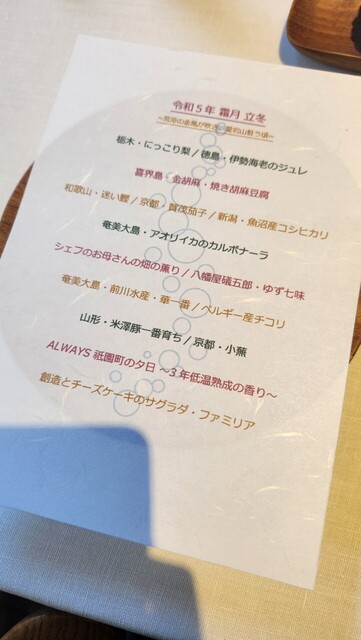 令和5年 霜月 立冬
栃木・にっこり梨 / 徳島・伊勢海老のジュレ
喜界島・金胡麻・焼き胡麻豆腐
和歌山・迷い鰹 / 京都・賀茂茄子 / 新潟・魚沼産コシヒカリ
奄美大島・アオリイカのカルボナーラ
シェフのお母さんの畑の薫り / 八幡屋礒五郎・ゆず七味
奄美大島・前川水産・華一番 / ベルギー産チコリ
山形・米澤豚一番育ち / 京都・小蕪
ALWAYS 祇園町の夕日 ～3年低温熟成の香り～
創造とチーズケーキのサグラダ・ファミリア